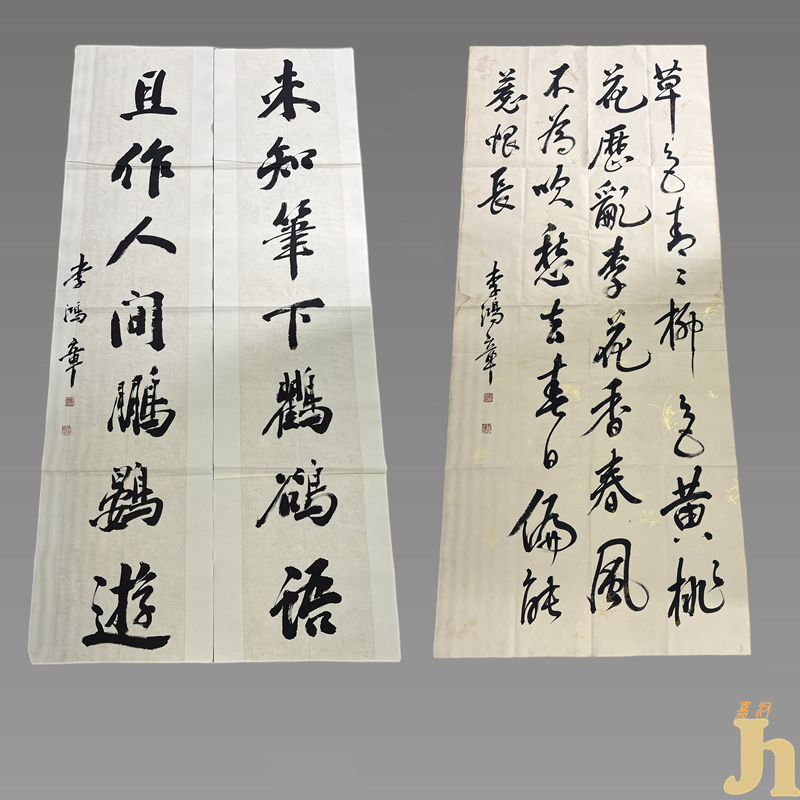 未知筆下鸜鵒語
且作人間鵬鷃遊
李鴻章
草色青〻柳色黄桃
花歷亂李花香春風
不為吹愁去春日偏能
惹恨長
李鴻章
jh